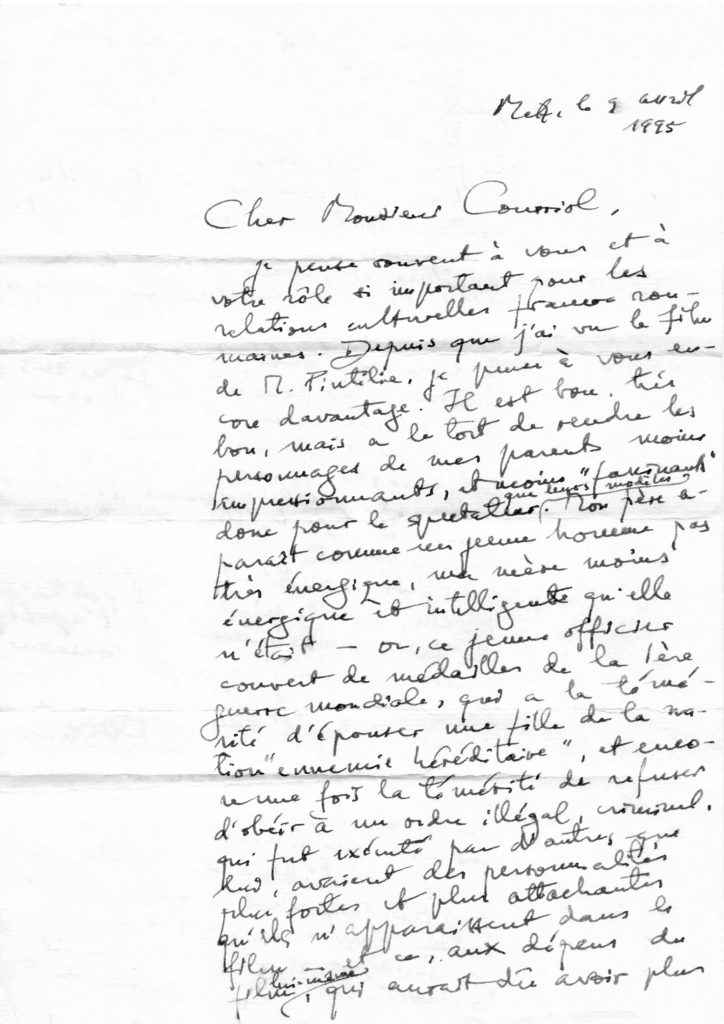 Metz, le 9 avril
1995
Cher Monsieur Courriol,
je pense souvent à vous et à
votre rôle si important pour les
relations culturelles franco rou-
maines. Depuis que j'ai vu le film
de M. Pintilie, je pense à vous en-
core davantage. Il est bon, très
bon, mais a le tort de rendre les
personnages de mes parents moins
impressionnants, et moins "fascinants"
que leurs modèles
donc pour le spectateur. Mon père a-
paraît comme un jeune homme pas
très énergique, ma mère moins
énergique et intelligente qu'elle
n'était – or, ce jeune officier
couvert de médailles de la 1ère
guerre mondiale, qui a la témé-
rité d'épouser une fille de la na-
tion "ennemie héréditaire", et enco-
re une fois la témérité de refuser
d'obéir à un ordre illégal, criminel,
qui fut exécuté par d'autres que
lui, avaient des personnalités
plus fortes et plus attachantes
qu'ils n'apparaissent dans le
film et ce, aux dépens du
film lui-même, qui aurait dû avoir plus